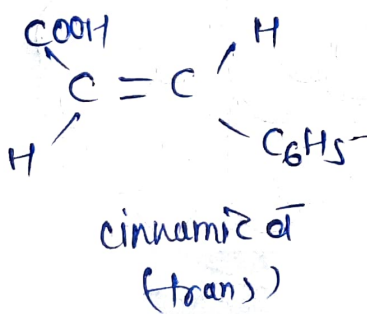 COOH H
C = C
H C6H5
cinnamic
(trans)